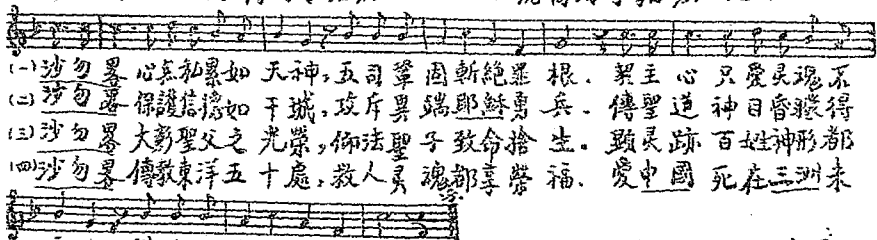 (一) 沙勿畧 心無私累如 天神，五司鞏固斬絕罪 根． 契主 心 只愛灵魂不
(二) 沙勿畧 保護信德如 干城，攻斥異端耶穌勇 兵． 傳聖 道 神目昏矇得
(三) 沙勿畧 大彰聖父之 光榮，仰法聖子致命捨 生． 顕灵 跡 百姓神形都
(四) 沙勿畧 傳教東洋五 十處，救人灵魂都享榮 福． 愛中 國 死在三洲未